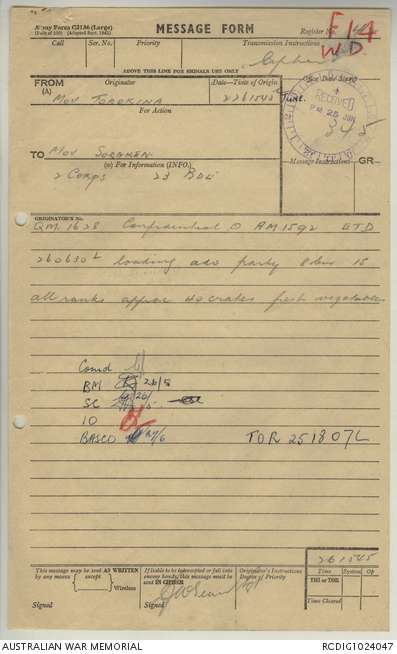 Army Form C2136 (Large)
(Pads of 100) (Adapted Sept. 1942)
MESSAGE FORM
Register No.
F14
WD
Call
Ser. No.
Priority
Transmission Instructions
Cipher
ABOVE THIS LINE FOR SIGNALS USE ONLY
FROM
(A)
Originator
Date—Time of Origin
Office Date Stamp
Mov Torokina
261545
June.
For Action
RECEIVED
345
TO
Mov Soraken
(w) For Information (INFO.)
Message Instructions
GR
2 Corps 23 Bde
ORIGINATOR'S No.
QM. 1628 Confidential O AM 1592 ETD
260630L loading adv party 8 Bty 15
all ranks approx 40 crates fresh vegetables
Comd
BM 26/5
SC
IO
BASCO 27/6
TOR 251807L
261545
This message may be sent AS WRITTEN
by any means (except)
Wireless
Signed
If liable to be intercepted or fall into
enemy hands, this message must be
sent IN CIPHER
Signed
Originator's Instructions
Degree of Priority
Time
System
Op
THI or TOR
Time Cleared
AUSTRALIAN WAR MEMORIAL
RCDIG1024047